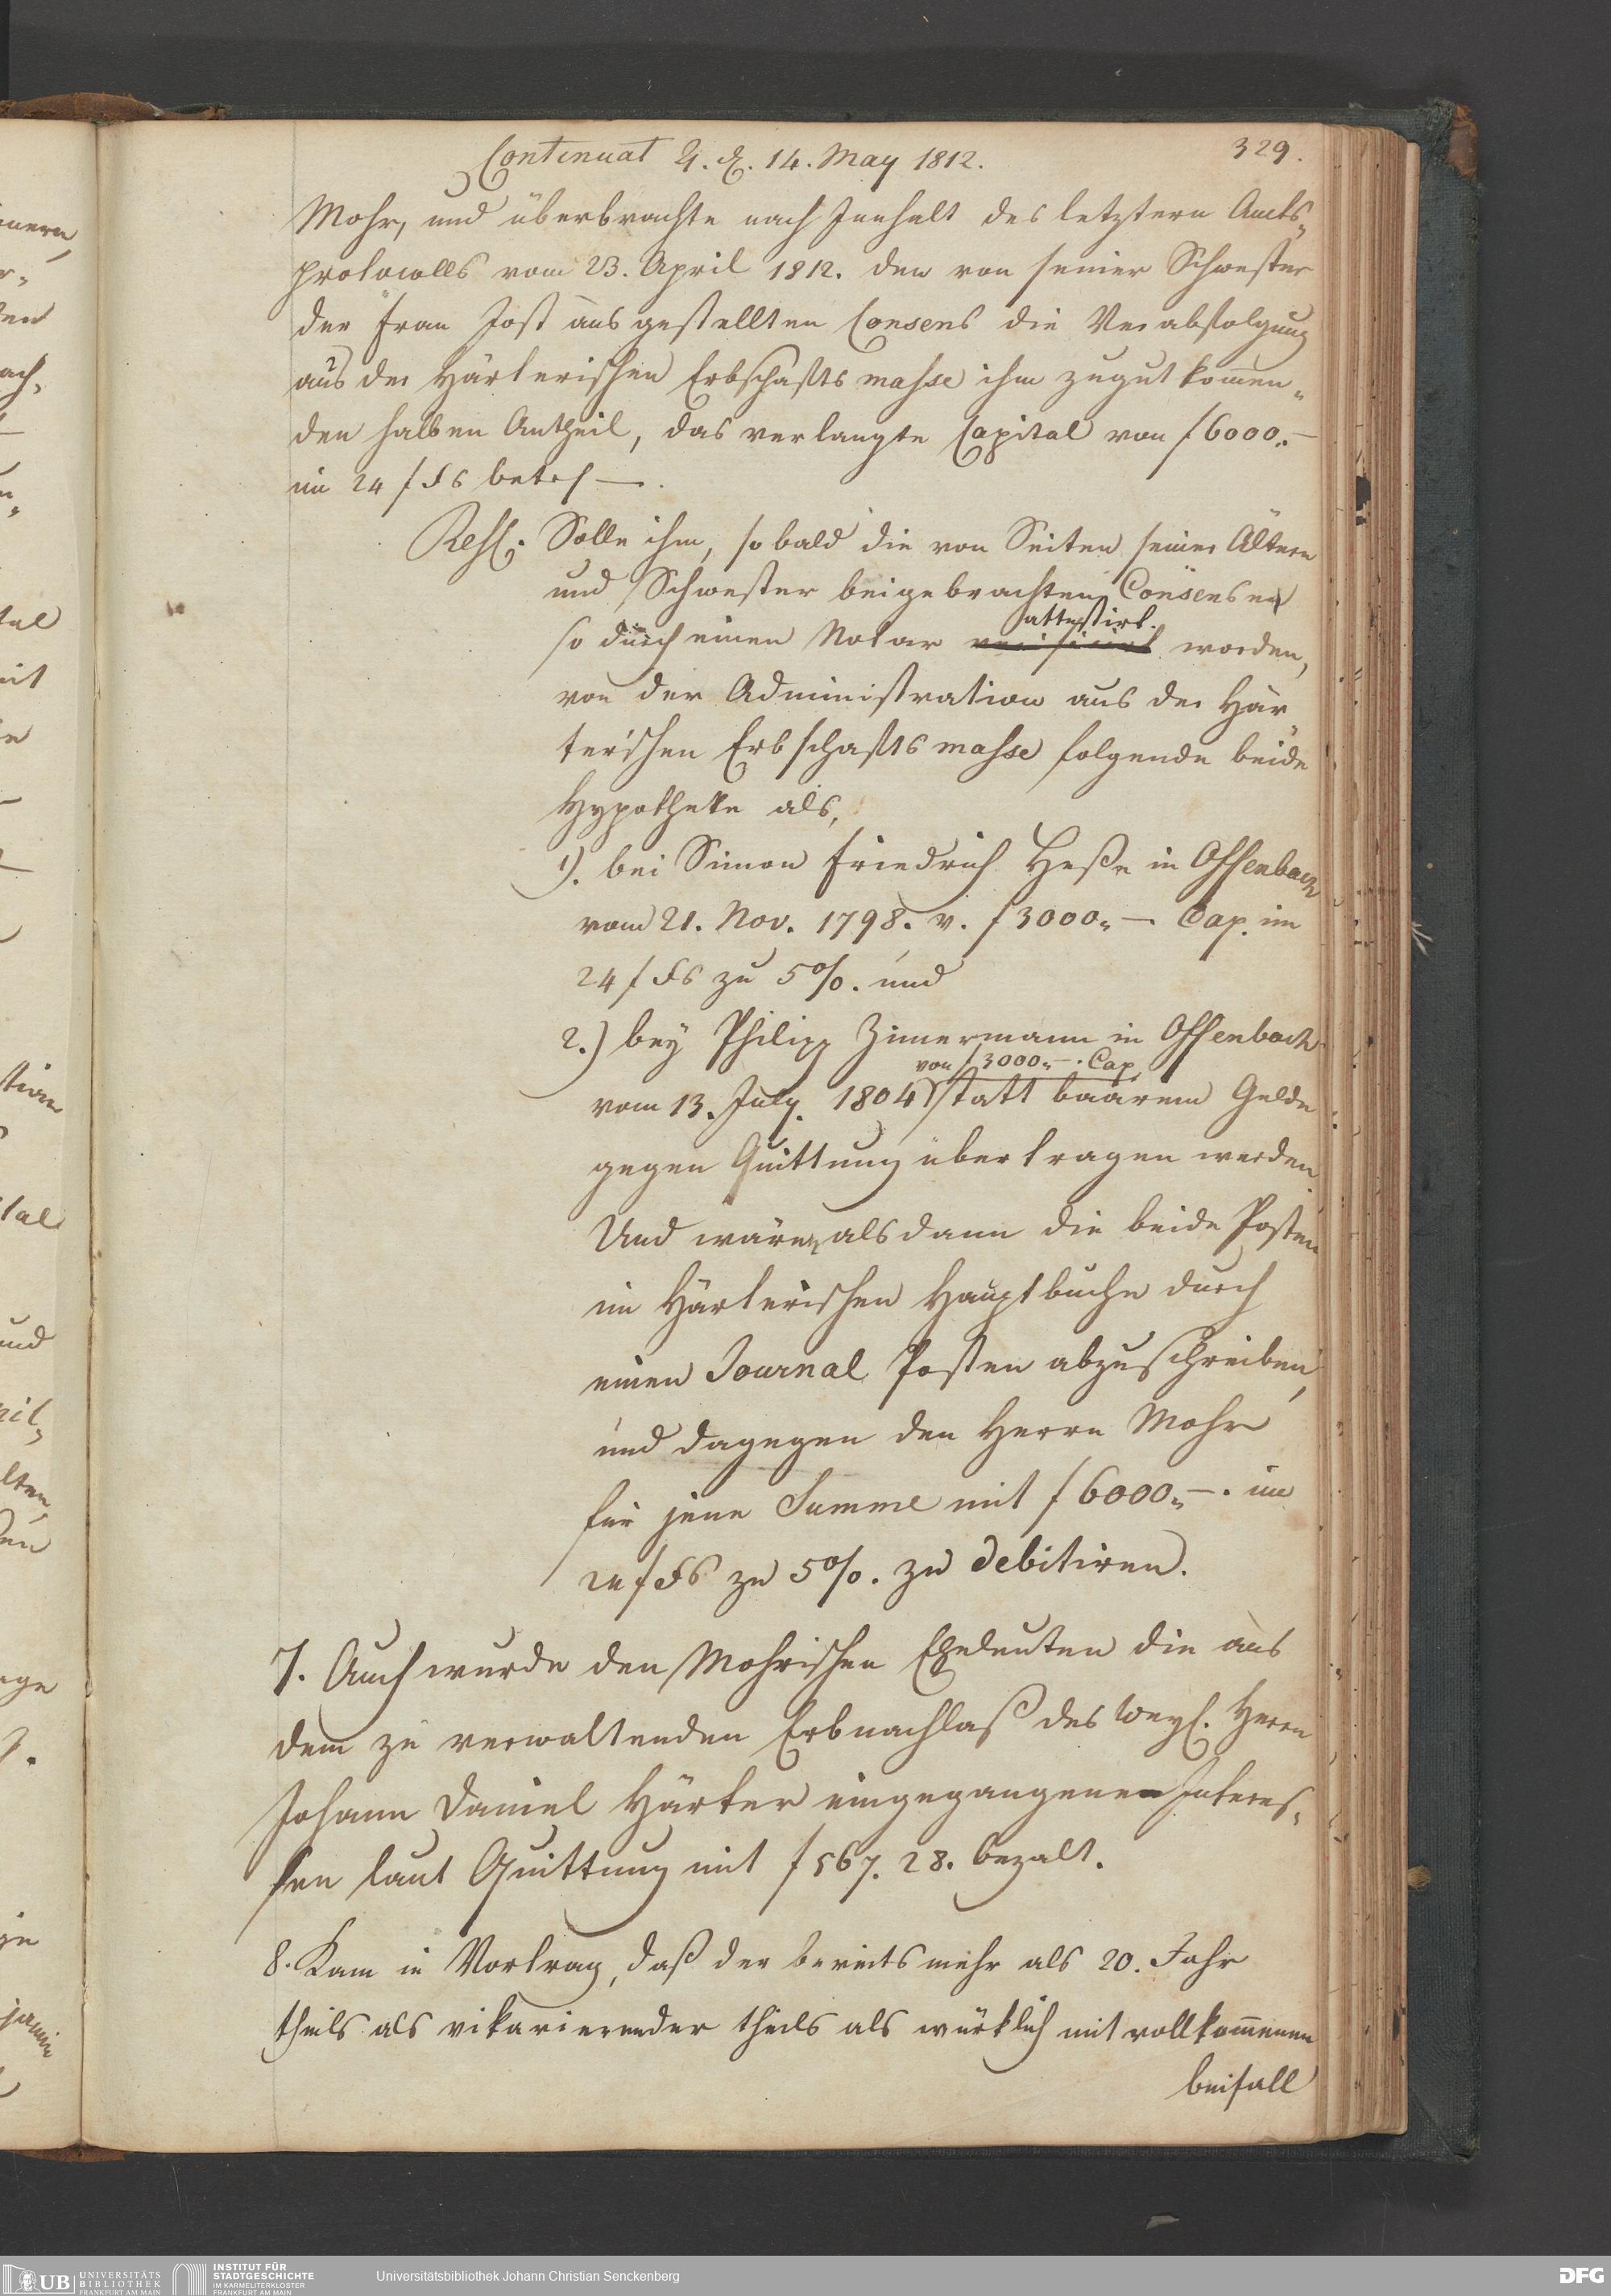 Continuat 4. d. 14. May 1812.
329.
Mohr, und überbrachte nach Innhalt des letztern Amts-
protocolls vom 23. April 1812. den von seiner Schwester
der Frau Jost ausgestellten Consens die Verabfolgung
aus der Härterischen Erbschafts masse ihm zugut kom̅en-
den halben Antheil, das verlangte Capital von f 6000.—
im 24 f Fs betrf —.
Resl. Solle ihm, so bald die von Seiten seiner Ältern
und Schwester beigebrachten Consensen
attestirt.
so durch einen Notar worden,
von der Administration aus der Här-
ter'schen Erbschafts masse folgende beide
Hypotheke als,
1). bei Simon Friedrich Heße in Offenbach
vom 21. Nov. 1798. v. f 3000.— Cap. im
24 f Fs zu 5 %. und
2.) bey Philipp Zimermann in Offenbach
von f 3000.—. Cap.
vom 13. July. 1804 statt baarem Gelde
gegen Quittung übertragen werden.
Und wären alsdann die beide Posten
im Härterischen Hauptbuche durch
einen Journal Posten abzuschreiben,
und dagegen den Herrn Mohr
für jene Summe mit f 6000.—. im
24 f Fs zu 5 %. zu debitiren.
7. Auch wurde den Mohrischen Eheleuten die aus
dem zu verwaltenden Erbnachlaß des weyl. Herrn
Johann Daniel Härter eingegangenen Interes-
sen laut Quittung mit f 567. 28. bezalt.
8. Kam in Vortrag, daß der bereits mehr als 20. Jahr
theils als vikarierender theils als würklich mit vollkom̅enem
beifall
UB UNIVERSITÄTS
BIBLIOTHEK
FRANKFURT AM MAIN
INSTITUT FÜR
STADTGESCHICHTE
IM KARMELITERKLOSTER
FRANKFURT AM MAIN
Universitätsbibliothek Johann Christian Senckenberg
DFG